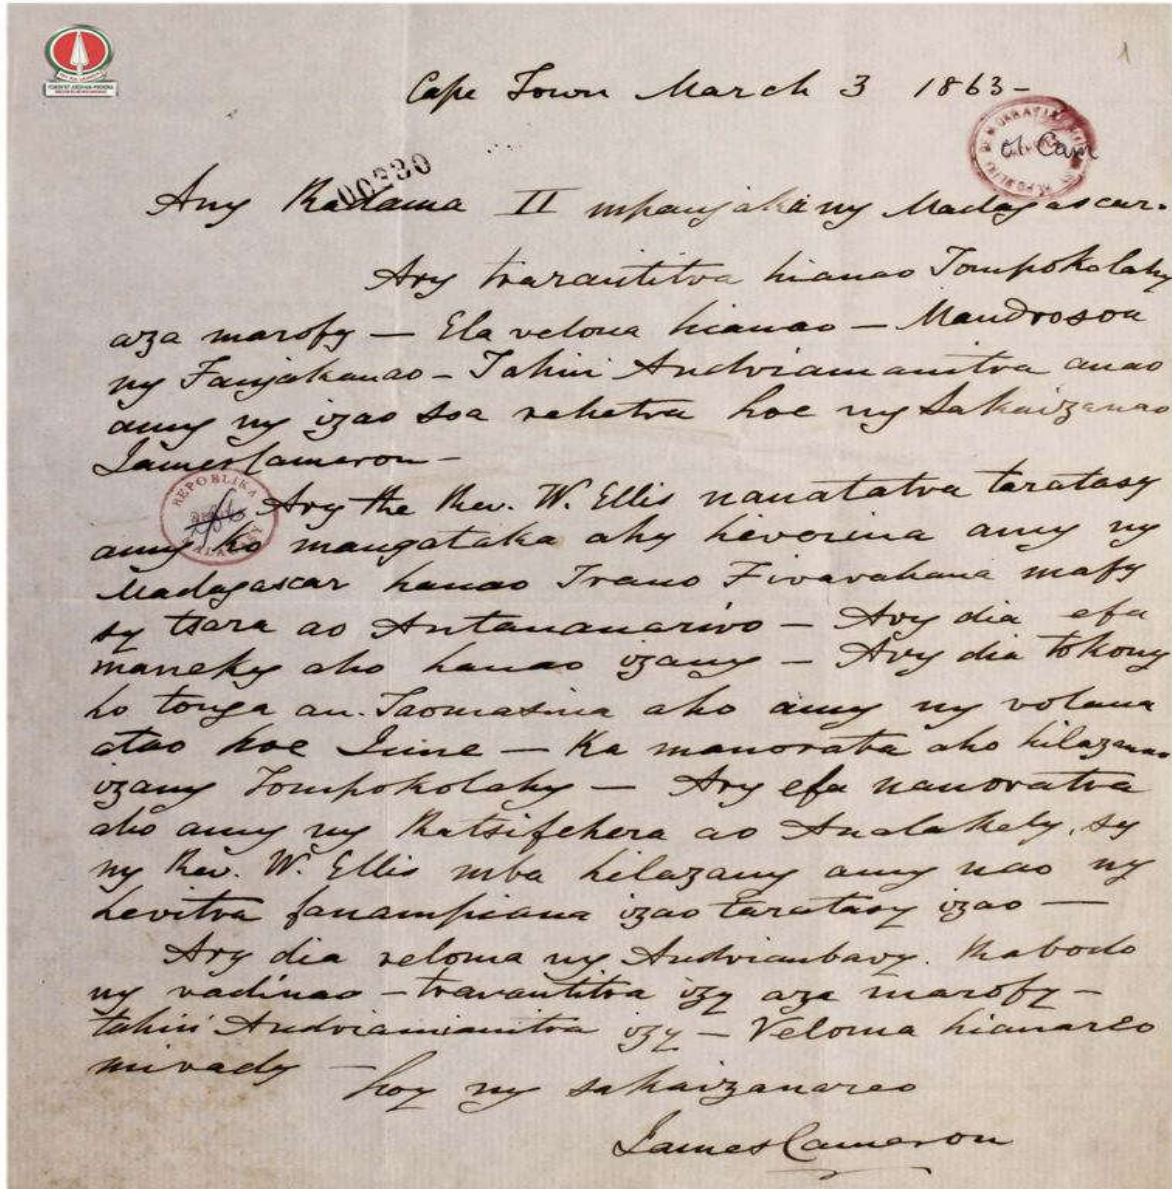 1
Cape Town March 3 1863-
ol Cam
00230
Any Radama II mpanjaka ny Madagascar.
Ary trarantitra hianao Tompokolahy
aza marofy — Ela velona hianao — Mandroson
ny Fanjakanao - Tahin Andriamanitra anao
amy ny izao soa rehetra hoe ny Sakaizanao
James Cameron -
REPOBLIKA
Ary the Rev. W. Ellis nanatatra taratasy
amy ko mangataka ahy hivorina amy ny
Madagascar hanao Trano Fivavahana mafy
sy tsara ao Antananarivo — Ary dia efa
maneky aho hanao izany — Ary dia tokony
ho tonga an. Taomasina aho amy ny volana
atao hoe June — Ka manorata aho hilazanao
izany Tompokolahy — Ary efa nanoratra
aho amy ny Ratsifehera ao Analakely, sy
ny Rev. W. Ellis mba hilazany amy nao ny
hevitra fanampiana izao taratasy izao —
Ary dia veloma ny Andriambavy. Rabodo
ny vadinao - travantitra izy aza marofy -
tahin Andriamanitra izy - Veloma hianareo
mivady - hoy ny sakaizanareo
James Cameron